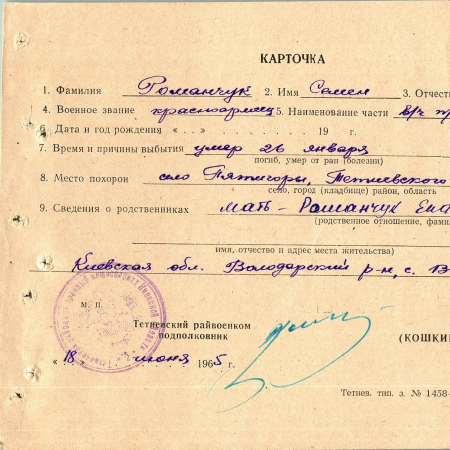 КАРТОЧКА
1. Фамилия Романчук 2. Имя Семен 3. Отчеств
4. Военное звание красноармеец 5. Наименование части в/ч
6. Дата и год рождения « . . » 19 г.
7. Время и причины выбытия умер 26 января
погиб, умер от ран (болезни)
8. Место похорон село Пятигоры, Тетиевского
село, город (кладбище) район, область
9. Сведения о родственниках мать - Романчук
(родственное отношение, фами
имя, отчество и адрес места жительства)
Киевская обл. Володарский р-н, с.
М. П.
Тетиевский райвоенком
подполковник
(КОШКИ
« 18 » июня 1965 г.
Тетиев. тип. з. № 1458-